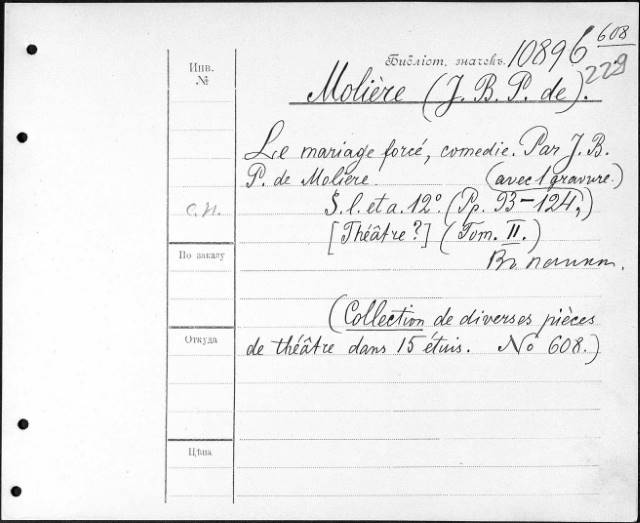 608
Библіот. значекъ. 10896
229
Инв.
№
Molière (J. B. P. de).
Le mariage forcé, comedie. Par J. B.
P. de Molière. (avec 1 gravure.)
S. l. et a. 12°. (Pp. 93-124,)
С. П.
[Théâtre?] (Tom. II.)
Въ папкѣ.
По заказу
(Collection de diverses pièces
Откуда
de théâtre dans 15 étuis. No 608.)
Цѣна